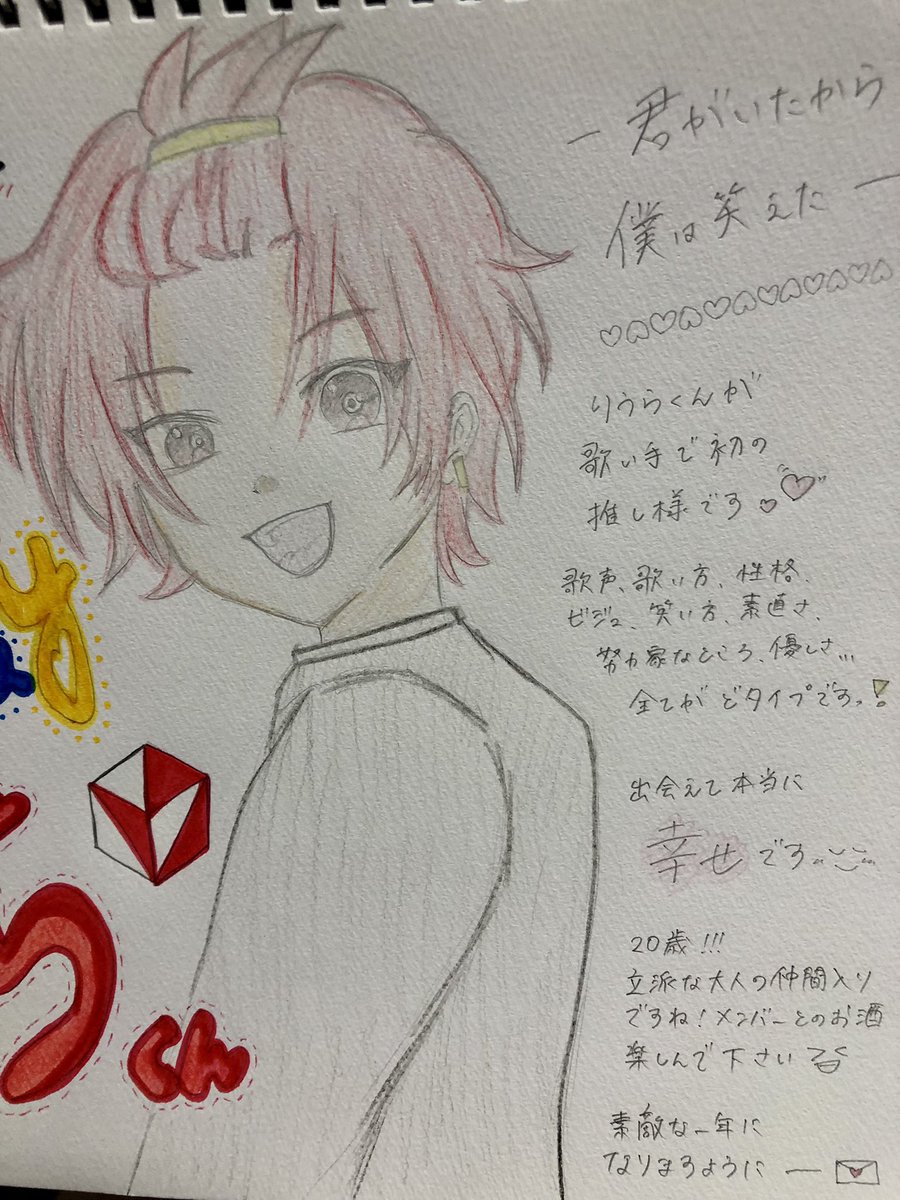 ― 君がいたから
僕は笑えた ―
りうらくんが
歌い手で初の
推し様です
歌声、歌い方、性格、
ビジュ、笑い方、素直さ、
努力家なところ、優しさ…
全てがどタイプですっ!
出会えて本当に
幸せです
20歳!!!
立派な大人の仲間入り
ですね!メンバーとのお酒
楽しんで下さい
素敵な一年に
なりますように ―
y
う
くん